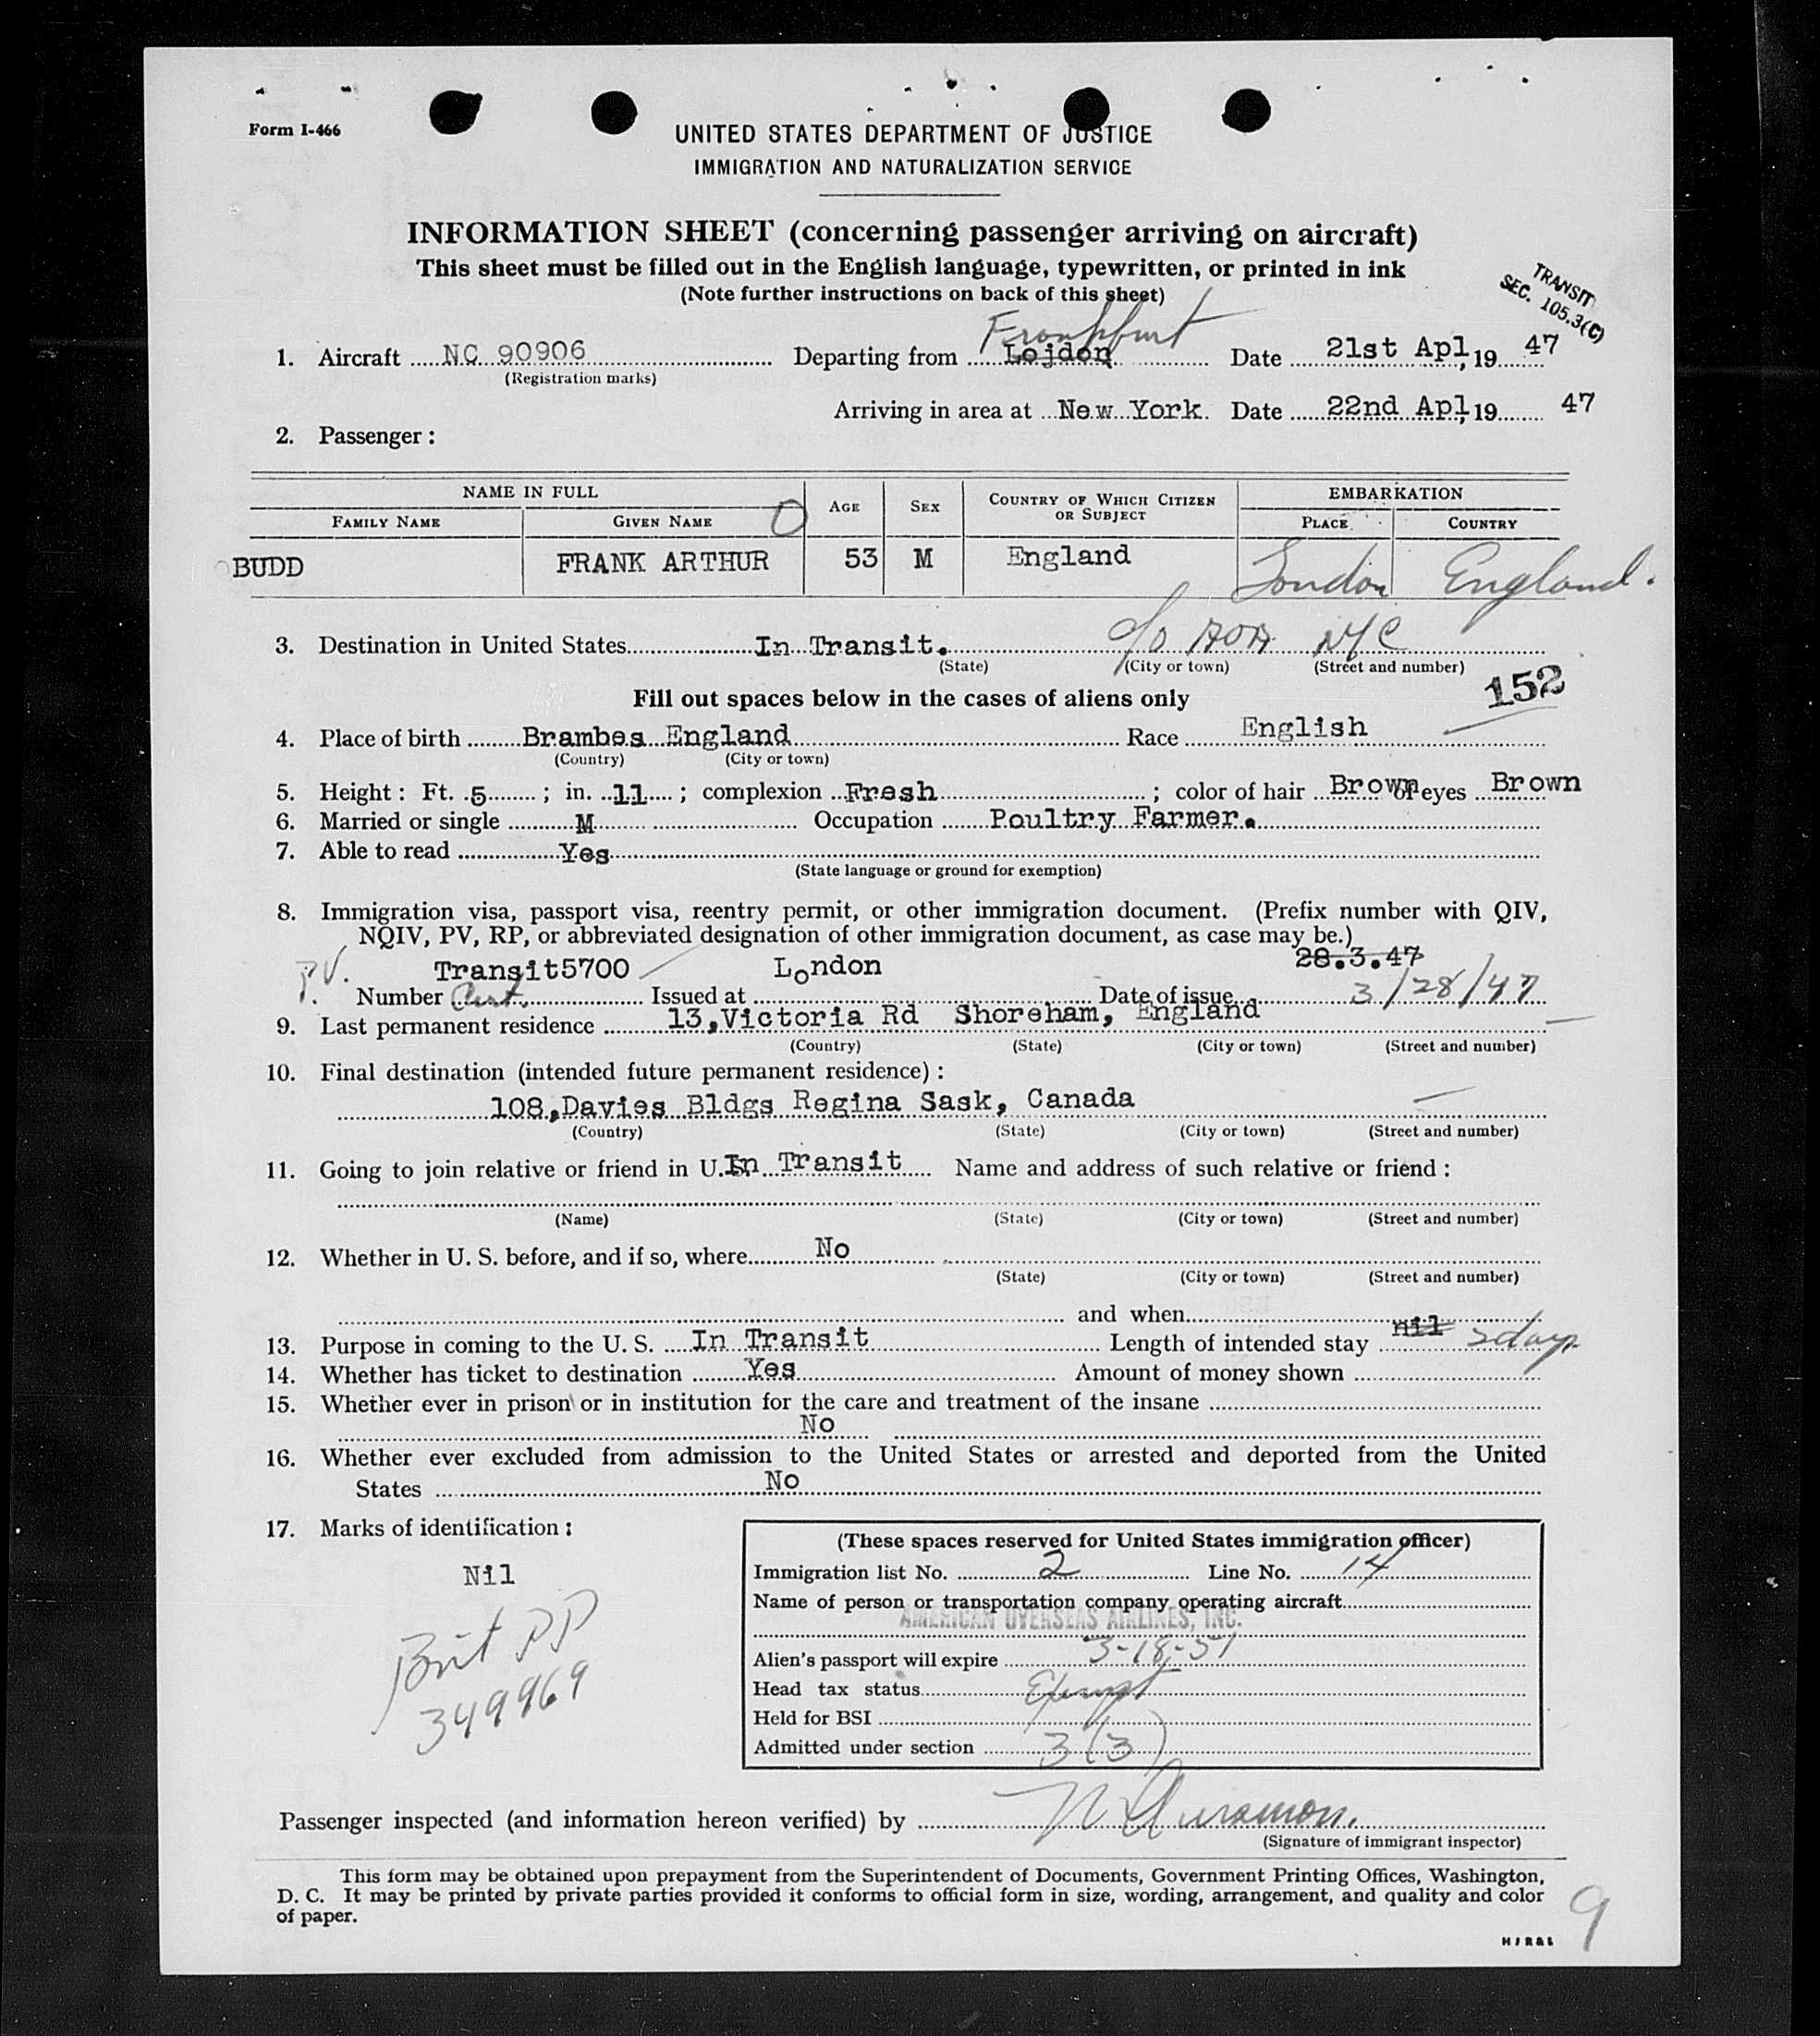 Form I-466
UNITED STATES DEPARTMENT OF JUSTICE
IMMIGRATION AND NATURALIZATION SERVICE
INFORMATION SHEET (concerning passenger arriving on aircraft)
This sheet must be filled out in the English language, typewritten, or printed in ink
(Note further instructions on back of this sheet)
TRANSIT
SEC. 105.3(C)
Frankfurt
1. Aircraft NC 90906 Departing from Lojdon Date 21st Apl, 19 47
(Registration marks)
Arriving in area at New York. Date 22nd Apl, 19 47
2. Passenger:
NAME IN FULL AGE SEX COUNTRY OF WHICH CITIZEN OR SUBJECT EMBARKATION
FAMILY NAME GIVEN NAME PLACE COUNTRY
BUDD FRANK ARTHUR 53 M England London England.
3. Destination in United States In Transit. c/o AOA NYC
(State) (City or town) (Street and number)
152
Fill out spaces below in the cases of aliens only
4. Place of birth Brambes England Race English
(Country) (City or town)
5. Height: Ft. 5; in. 11; complexion Fresh; color of hair Brown of eyes Brown
6. Married or single M Occupation Poultry Farmer.
7. Able to read Yes
(State language or ground for exemption)
8. Immigration visa, passport visa, reentry permit, or other immigration document. (Prefix number with QIV,
NQIV, PV, RP, or abbreviated designation of other immigration document, as case may be.)
P.V. Transit5700 London 28.3.47
Number Cert. Issued at Date of issue 3/28/47
9. Last permanent residence 13,Victoria Rd Shoreham, England
(Country) (State) (City or town) (Street and number)
10. Final destination (intended future permanent residence):
108,Davies Bldgs Regina Sask, Canada
(Country) (State) (City or town) (Street and number)
11. Going to join relative or friend in U.S. In Transit Name and address of such relative or friend:
(Name) (State) (City or town) (Street and number)
12. Whether in U. S. before, and if so, where No
(State) (City or town) (Street and number)
and when
13. Purpose in coming to the U. S. In Transit Length of intended stay nil 2 days
14. Whether has ticket to destination Yes Amount of money shown
15. Whether ever in prison or in institution for the care and treatment of the insane
No
16. Whether ever excluded from admission to the United States or arrested and deported from the United
States No
17. Marks of identification:
Nil
Brit PP
349969
(These spaces reserved for United States immigration officer)
Immigration list No. 2 Line No. 14
Name of person or transportation company operating aircraft
AMERICAN OVERSEAS AIRLINES, INC.
Alien's passport will expire 3-18-51
Head tax status Exempt
Held for BSI
Admitted under section 3(3)
Passenger inspected (and information hereon verified) by
(Signature of immigrant inspector)
This form may be obtained upon prepayment from the Superintendent of Documents, Government Printing Offices, Washington,
D. C. It may be printed by private parties provided it conforms to official form in size, wording, arrangement, and quality and color
of paper.
9